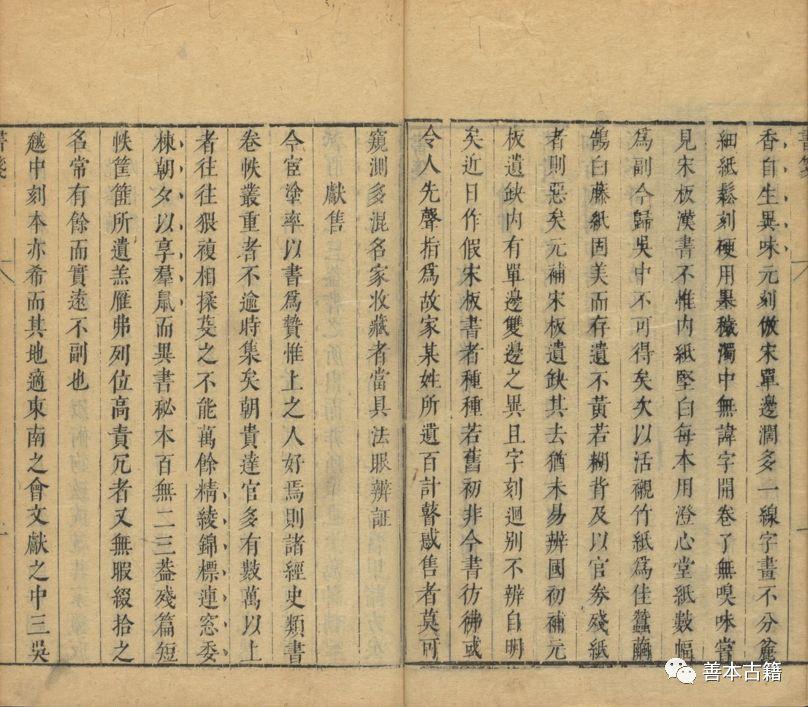 書箋
香自生異味元刻倣宋單邊濶多一線字畫不分麄
細紙鬆刻硬用墨穢濁中無諱字開卷了無嗅味嘗
見宋板漢書不惟内紙堅白每本用澄心堂紙數幅
爲副今歸吳中不可得矣次以活襯竹紙爲佳蠶繭
鵠白藤紙固美而存遺不黄若糊背及以官劵殘紙
者則惡矣元補宋板遺缺其去猶未易辨國初補元
板遺缺内有單邊雙邊之異且字刻迥别不辨自明
矣近日作假宋板書者種種若舊初非今書彷彿或
令人先聲指爲故家某姓所遺百計瞽惑售者莫可
窺測多混名家收藏者當具法眼辨証
獻售
今宦塗率以書爲贄惟上之人好焉則諸經史類書
卷帙叢重者不逾時集矣朝貴達官多有數萬以上
者往往猥複相揉芟之不能萬餘精綾錦標連窓委
棟朝夕以享羣鼠而異書秘本百無二三葢殘篇短
帙筐篚所遺羔雁弗列位高責冗者又無暇綴拾之
名常有餘而實遠不副也
越中刻本亦希而其地適東南之會文獻之中三吳
書箋
善本古籍